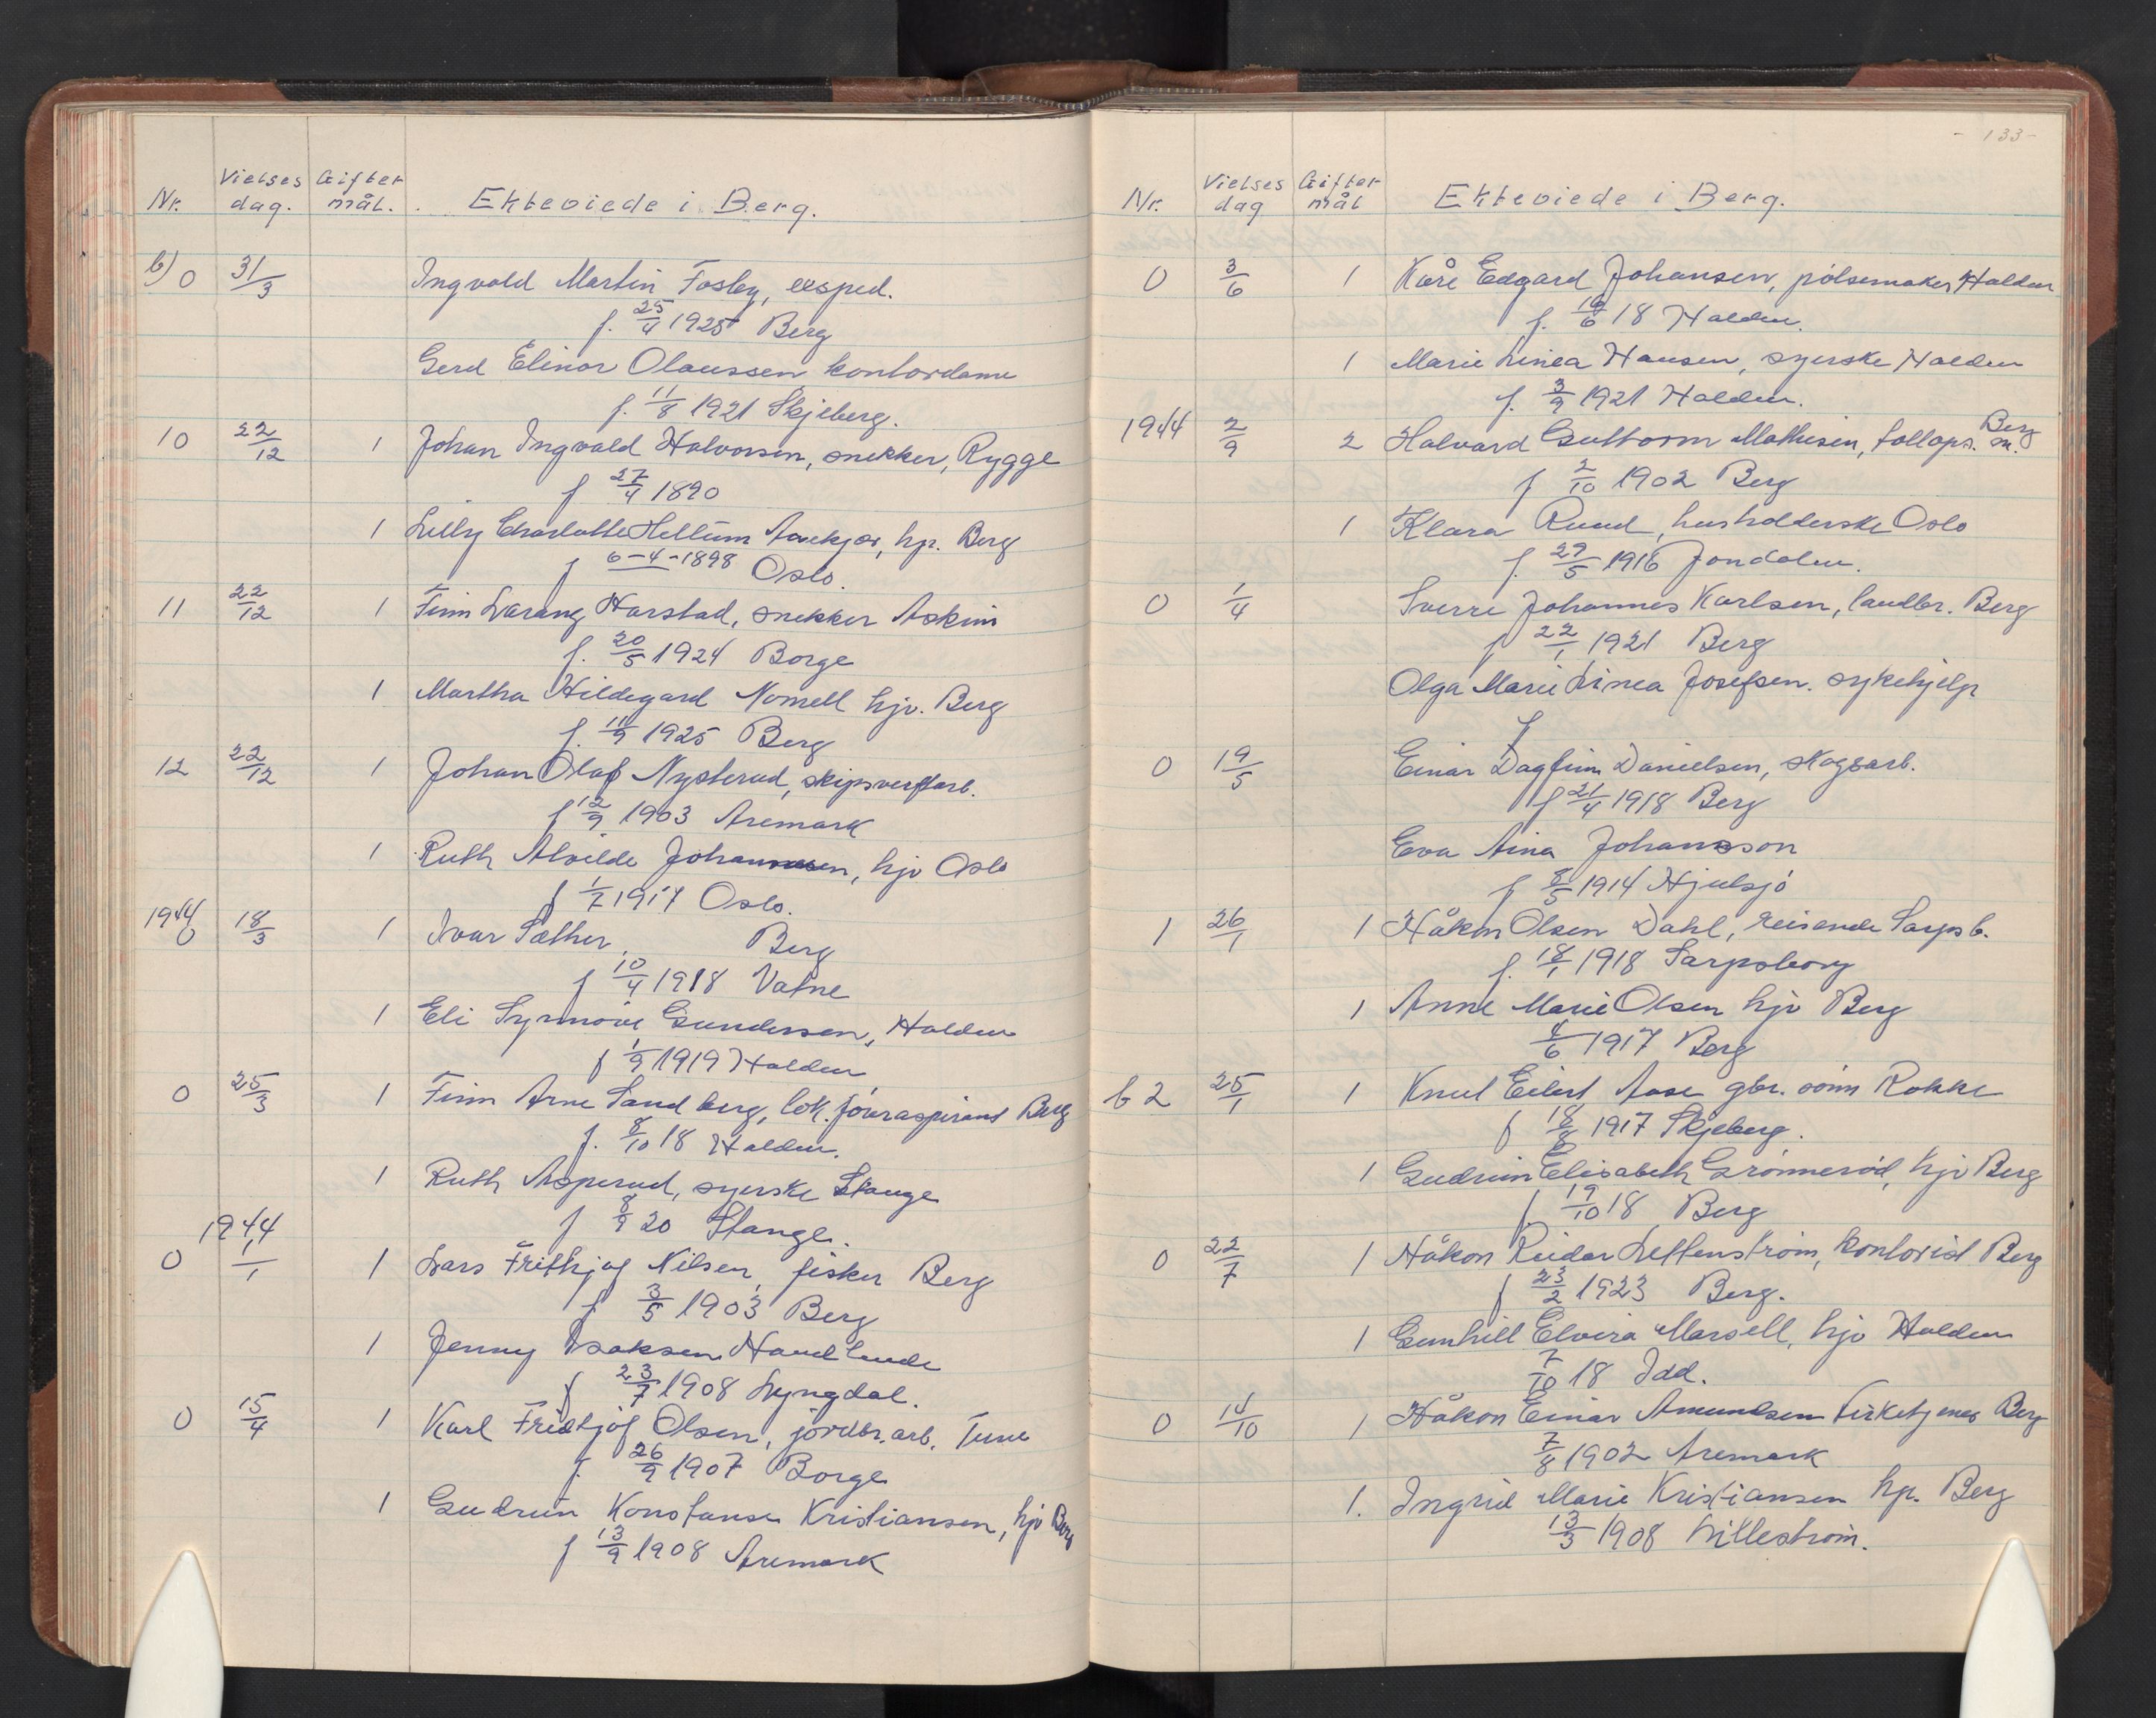 Nr. Vielses dag. Gifter mål. Ekteviede i Berg.
b) 0 31/3 Ingvald Martin Fosby, exsped.
f. 25/4 1925 Berg
Gerd Elinor Olaussen kontordame
f. 11/8 1921 Skjeberg.
10 22/12 1 Johan Ingvald Halvorsen, snekker, Rygge
f 27/4 1890
1 Lilly Charlotte Hellum, hp. Berg
f 6-4-1898 Oslo.
11 22/12 1 Finn Harstad, snekker Askim
f. 20/5 1924 Borge
1 Martha Hildegard Nomell hjv. Berg
f. 11/9 1925 Berg
12 22/12 1 Johan Olaf Nysterud, skipsverftarb.
f 12/9 1903 Aremark
1 Ruth Alvilde Johannesen, hjv Oslo
f 1/7 1917 Oslo.
1944 0 18/3 1 Ivar Sæther, Berg
f 10/4 1918 Vatne
1 Eli Synnøve Gundersen, Halden
f 1/9 1919 Halden
0 25/3 1 Finn Arne Sandberg, lok.föreraspirant Berg
f. 8/10 18 Halden.
1 Ruth Asperud, syerske Stange
f 8/9 20 Stange.
1944
0 1/1 1 Lars Frithjof Nilsen, fisker Berg
f 3/5 1903 Berg
1 Jenny Isaksen Haudlende
f 23/7 1908 Lyngdal.
0 15/4 1 Karl Fridtjof Olsen, jordbr.arb. Tune
f. 26/9 1907 Borge
1 Gudrun Konstanse Kristiansen, hjv Berg
f 13/9 1908 Aremark
- 133 -
Nr. Vielses dag Gifter mål Ekteviede i Berg.
0 3/6 1 Kåre Edgard Johansen, pølsemaker Halden
f. 16/6 18 Halden.
1 Marie Linea Hansen, syerske Halden
f. 3/9 1921 Halden.
1944 2/9 2 Halvard Guttorm Mathisen, tollops. m. Berg
f 2/10 1902 Berg
1 Klara Ruud, husholderske Oslo
f. 29/5 1916 Jondalen.
0 1/4 Sverre Johannes Karlsen, landbr. Berg
f 22/1 1921 Berg
Olga Marie Linea Josefsen. sykehjelp
f
0 19/5 Einar Dagfinn Danielsen, skogsarb.
f 21/4 1918 Berg
Eva Aina Johansson
f 8/5 1914 Hjulsjö
1 26/1 1 Håkon Olsen Dahl, reisende Sarpsb.
f. 18/1 1918 Sarpsborg
1 Anne Marie Olsen hjv Berg
4/6 1917 Berg
b 2 25/1 1 Knut Eilert Aase gbr. sønn Rokke
f 18/8 1917 Skjeberg.
1 Gudrun Elisabeth Grønnerød, hjv Berg
f 19/10 18 Berg
0 22/7 1 Håkon Reidar Lettenstrøm, kontorist Berg
f 23/2 1923 Berg.
1 Gunhill Elvira Marsell, hjv Halden
7/10 18 Idd.
0 14/10 1 Håkon Einar Amundsen kirketjener Berg
7/8 1902 Aremark
1. Ingrid Marie Kristiansen hp. Berg
13/3 1908 Lillestrøm.